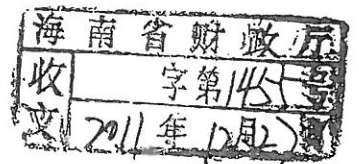 海南省财政厅
收文 字第1455号
2011年12月27日